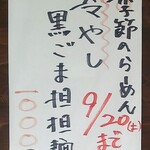 季節のらーめん
冷やし
黒ごま担担麺
9/20(土)まで
1000